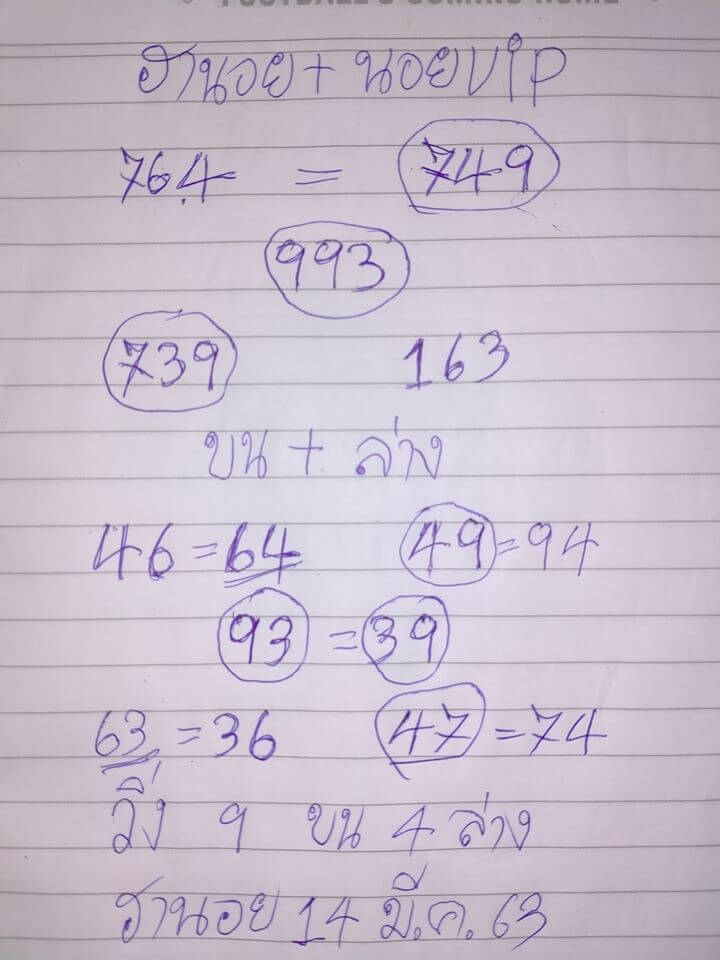 FOOTBALL'S COMING HOME
ฮานอย + นอยVip
764 = 749
993
739 163
บน + ล่าง
46 = 64 49 = 94
93 = 39
63 = 36 47 = 74
วิ่ง 9 บน 4 ล่าง
ฮานอย 14 มี.ค. 63